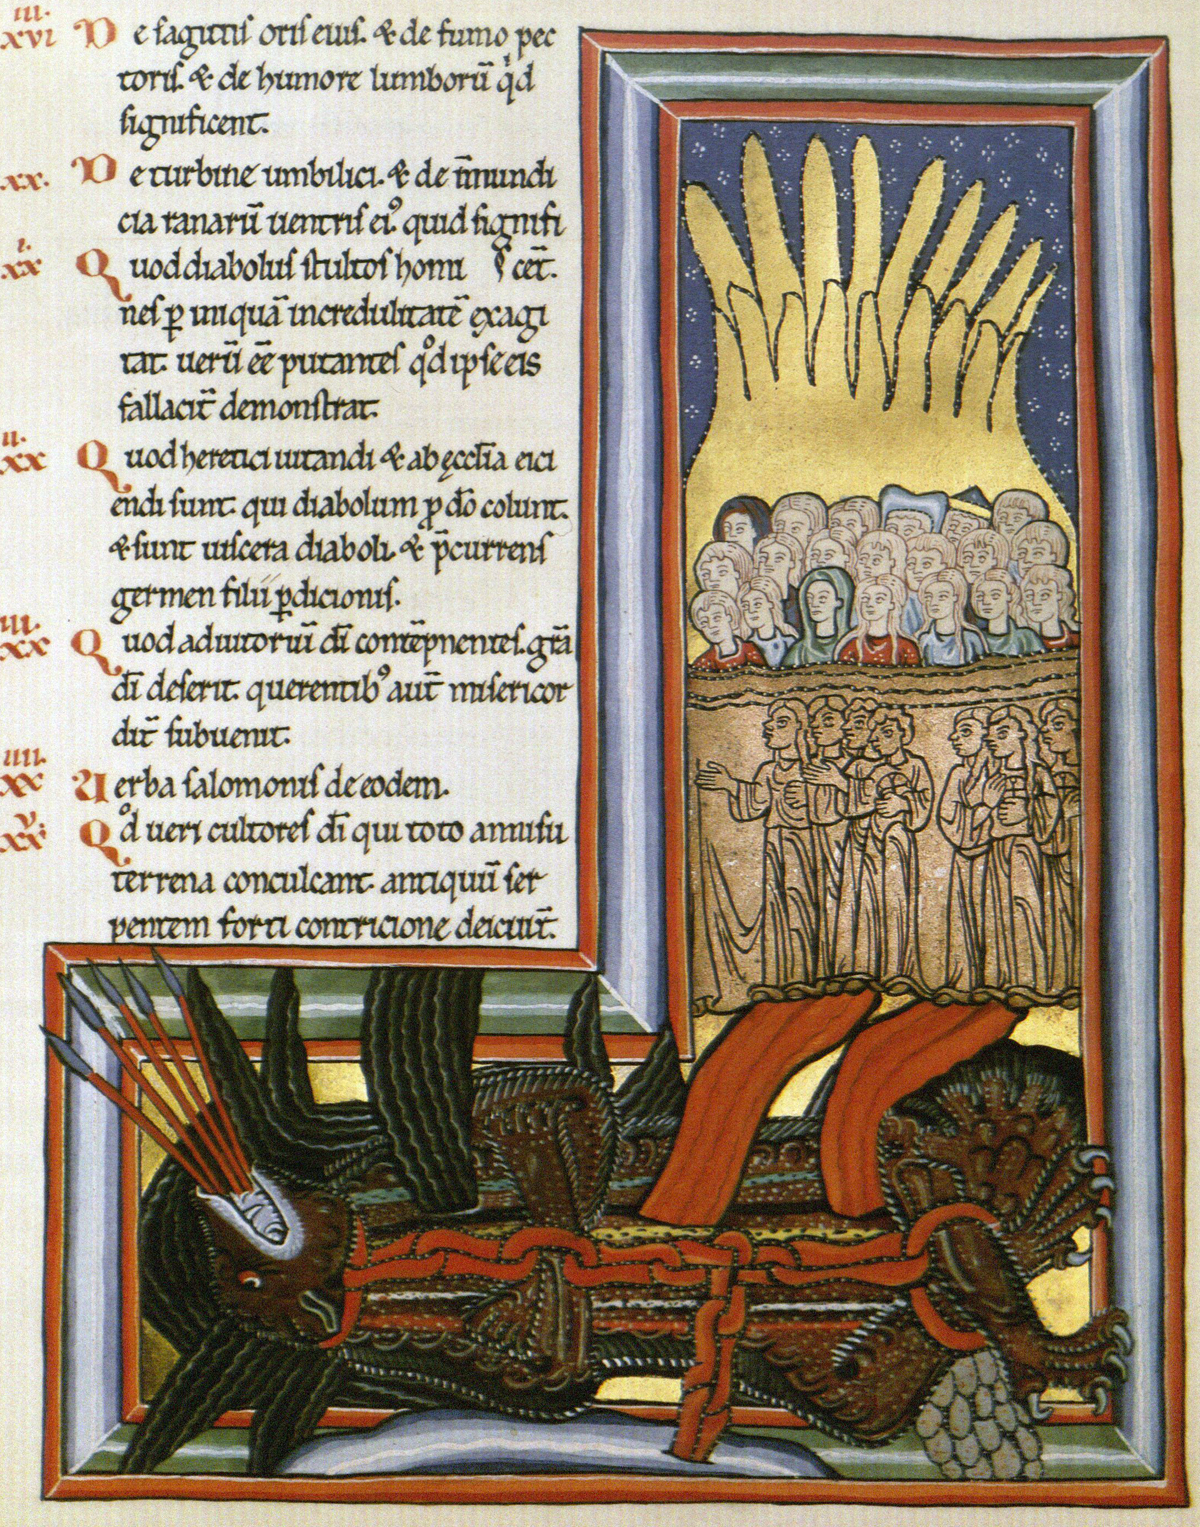 iii.
xvi De sagittis oris eius. & de fumo pec
toris. & de humore lumborū qd
significent.
xx. De turbine umbilici. & de īmundi
cia ranarū uentris eiꝰ quid signifi
i.
xx Quod diabolus stultos homi cēt.
nes ꝑ iniquā incredulitatē exagi
tat. uerū eē putantes qd ipse eis
fallacit̄ demonstrat.
ii.
xx Quod heretici uitandi & ab ęccl̄ia eici
endi sunt. qui diabolum ꝓ dō colunt.
& sunt uiscera diaboli. & p̄currens
germen filii ꝑdicionis.
iii.
xx Quod adiutoriū dī contēpnentes. grā
dī deserit. querentibꝰ aut̄ misericor
dit̄ subuenit.
iiii.
xx Verba salomonis de eodem.
v.
xx Qd ueri cultores dī qui toto annisu
terrena conculcant. antiquū ser
pentem forti contricione deiciūt.